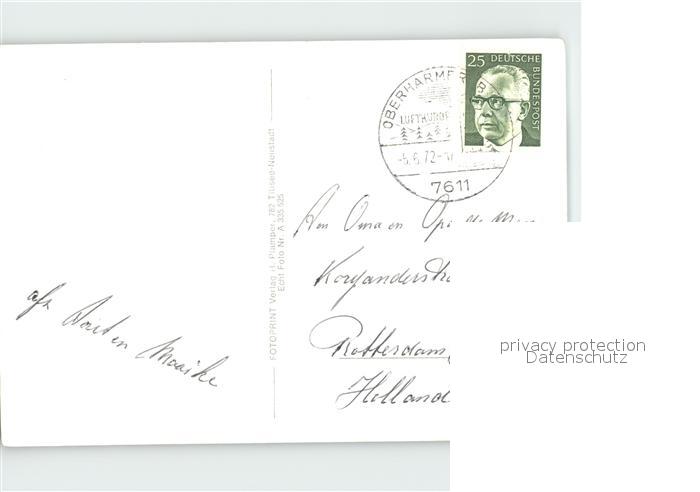 25 DEUTSCHE
BUNDESPOST
OBERHARMER
LUFTKURORT
-5.6.72-
7611
FOTOPRINT Verlag H. Plamper, 782 Titisee-Neustadt
Echt Foto Nr. A 335 525
Aan Oma en Opa de
Rotterdam,
Holland
afz Dorit en Maaike
privacy protection
Datenschutz